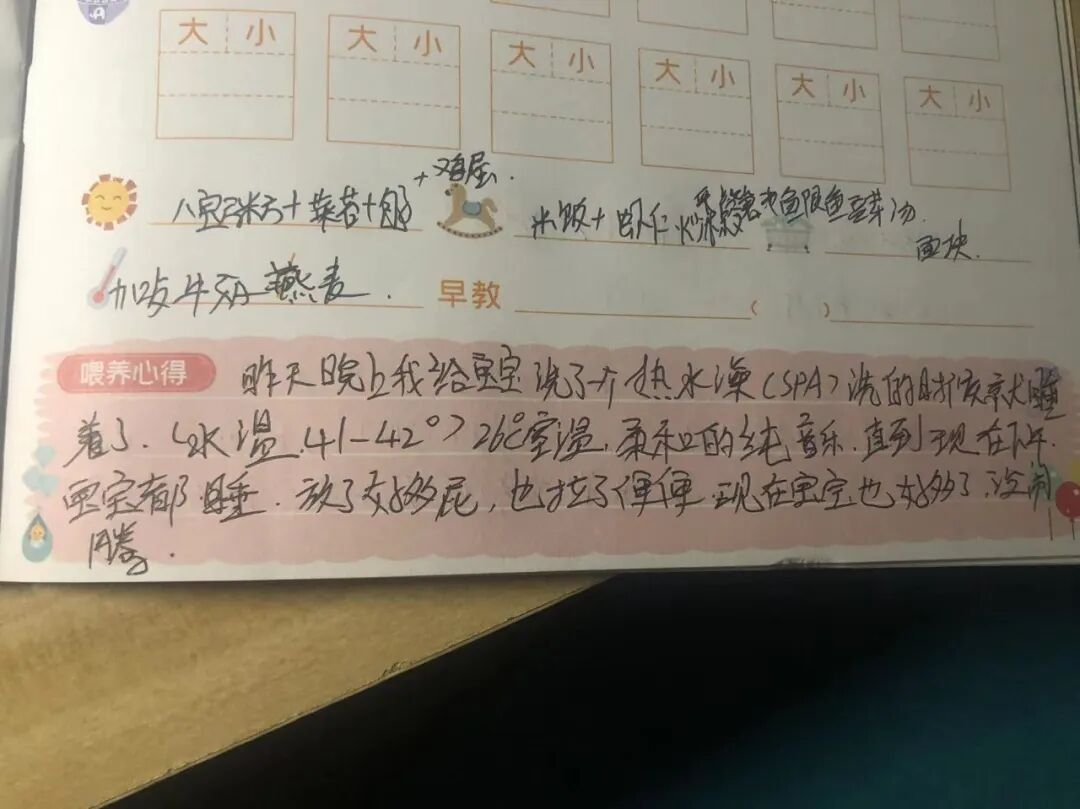 A
大 小 大 小 大 小 大 小 大 小 大 小
+ 鸡蛋.
八宝粥+菜苔+
米饭+虾仁炒 鱼 汤.
面块.
加点牛奶燕麦.
早教 ( )
喂养心得
昨天晚上我给宝宝洗了个热水澡(SPA)洗的时候就睡
着了.(水温.41-42°)26℃室温,柔和的纯音乐.直到现在下午.
宝宝都睡.放了好多屁,也拉了便便.现在宝宝也好多了,没闹
腾.